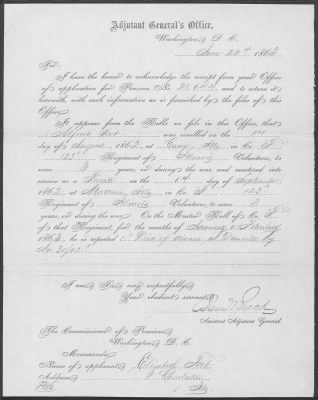 Adjutant General's Office,
Washington, D. C.
June 22d 1863
Sir:
I have the honor to acknowledge the receipt from your Office
of application for Pension No. 21,644, and to return it
herewith, with such information as is furnished by the files of this
Office.
It appears from the Rolls on file in this Office, that
Alfred was enrolled on the
day of August, 1862, at in Co.
123d Regiment of Illinois Volunteers, to
serve 3 years, or during the war, and mustered into
service as a Private on the 6th day of September,
1862, at Mattoon, Ills, in Co. 123d
Regiment of Illinois Volunteers, to serve 3
years, or during the war. On the Muster Roll of Co.
of that Regiment, for the months of January & February,
1863, he is reported Died of disease at Danville Ky
I am, Sir, very respectfully,
Your obedient servant,
Saml Breck
Assistant Adjutant General.
The Commissioner of Pensions,
Washington, D. C.
Memoranda.
Name of applicant, Elizabeth
Address,
Ills